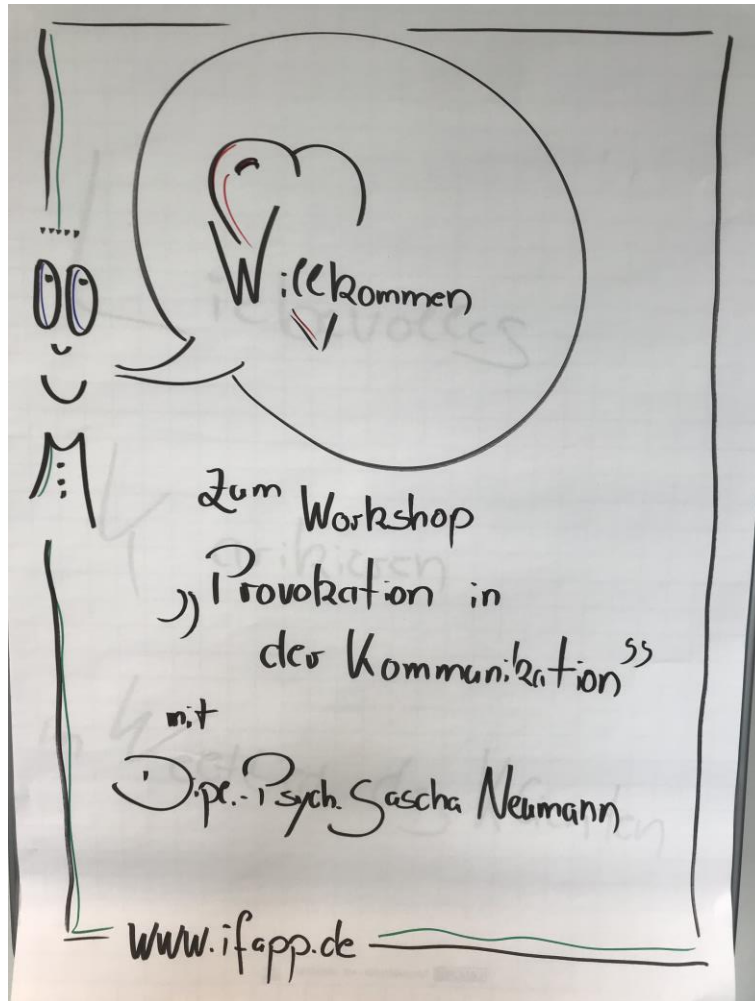 Willkommen
zum Workshop
„Provokation in
der Kommunikation"
mit
Dipl.-Psych. Sascha Neumann
www.ifapp.de